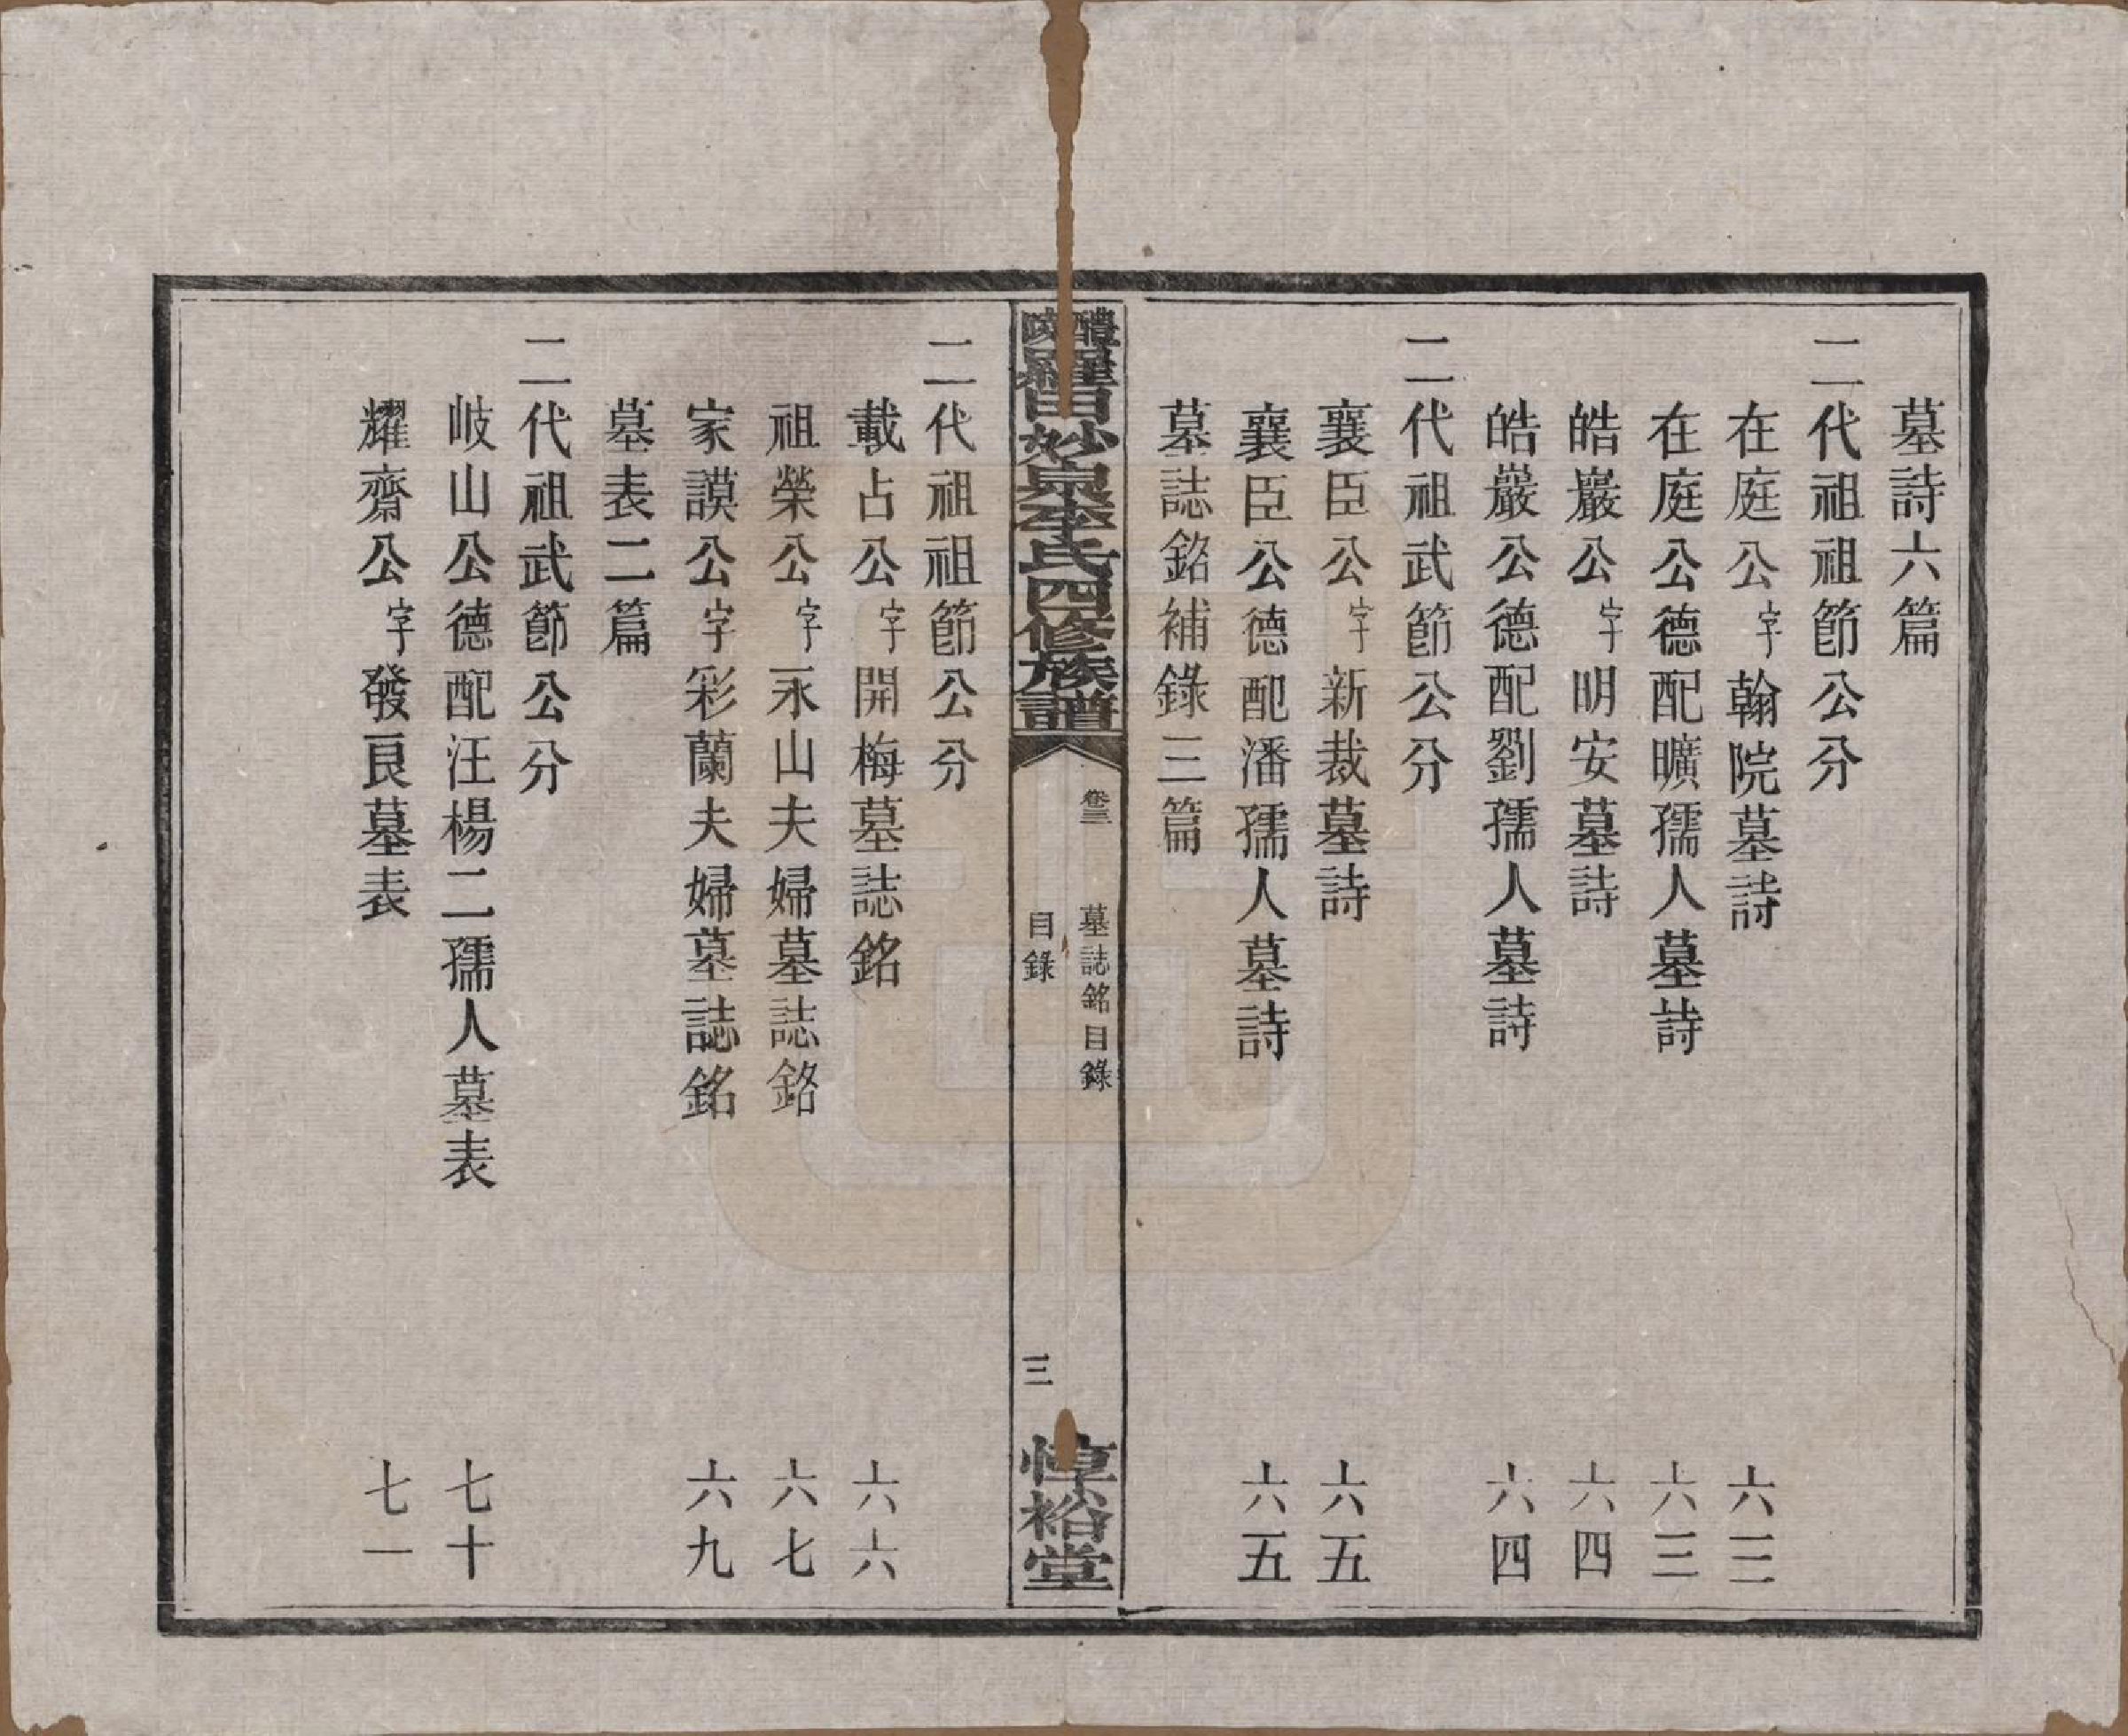 墓詩六篇
二代祖祖節公分
在庭公字翰院墓詩 六三
在庭公德配曠孺人墓詩 六三
皓巖公字明安墓詩 六四
皓嚴公德配劉孺人墓詩 六四
二代祖武節公分
襄臣公字新裁墓詩 六五
襄臣公德配潘孺人墓詩 六五
墓誌銘補錄三篇
醴陵羅田妙泉李氏四修族譜
卷三 墓誌銘目錄
目錄 三
惇裕堂
二代祖祖節公分
載占公字開梅墓誌銘 六六
祖榮公字永山夫婦墓誌銘 六七
家謨公字彩蘭夫婦墓誌銘 六九
墓表二篇
二代祖武節公分
岐山公德配汪楊二孺人墓表 七十
耀齋公字發良墓表 七一